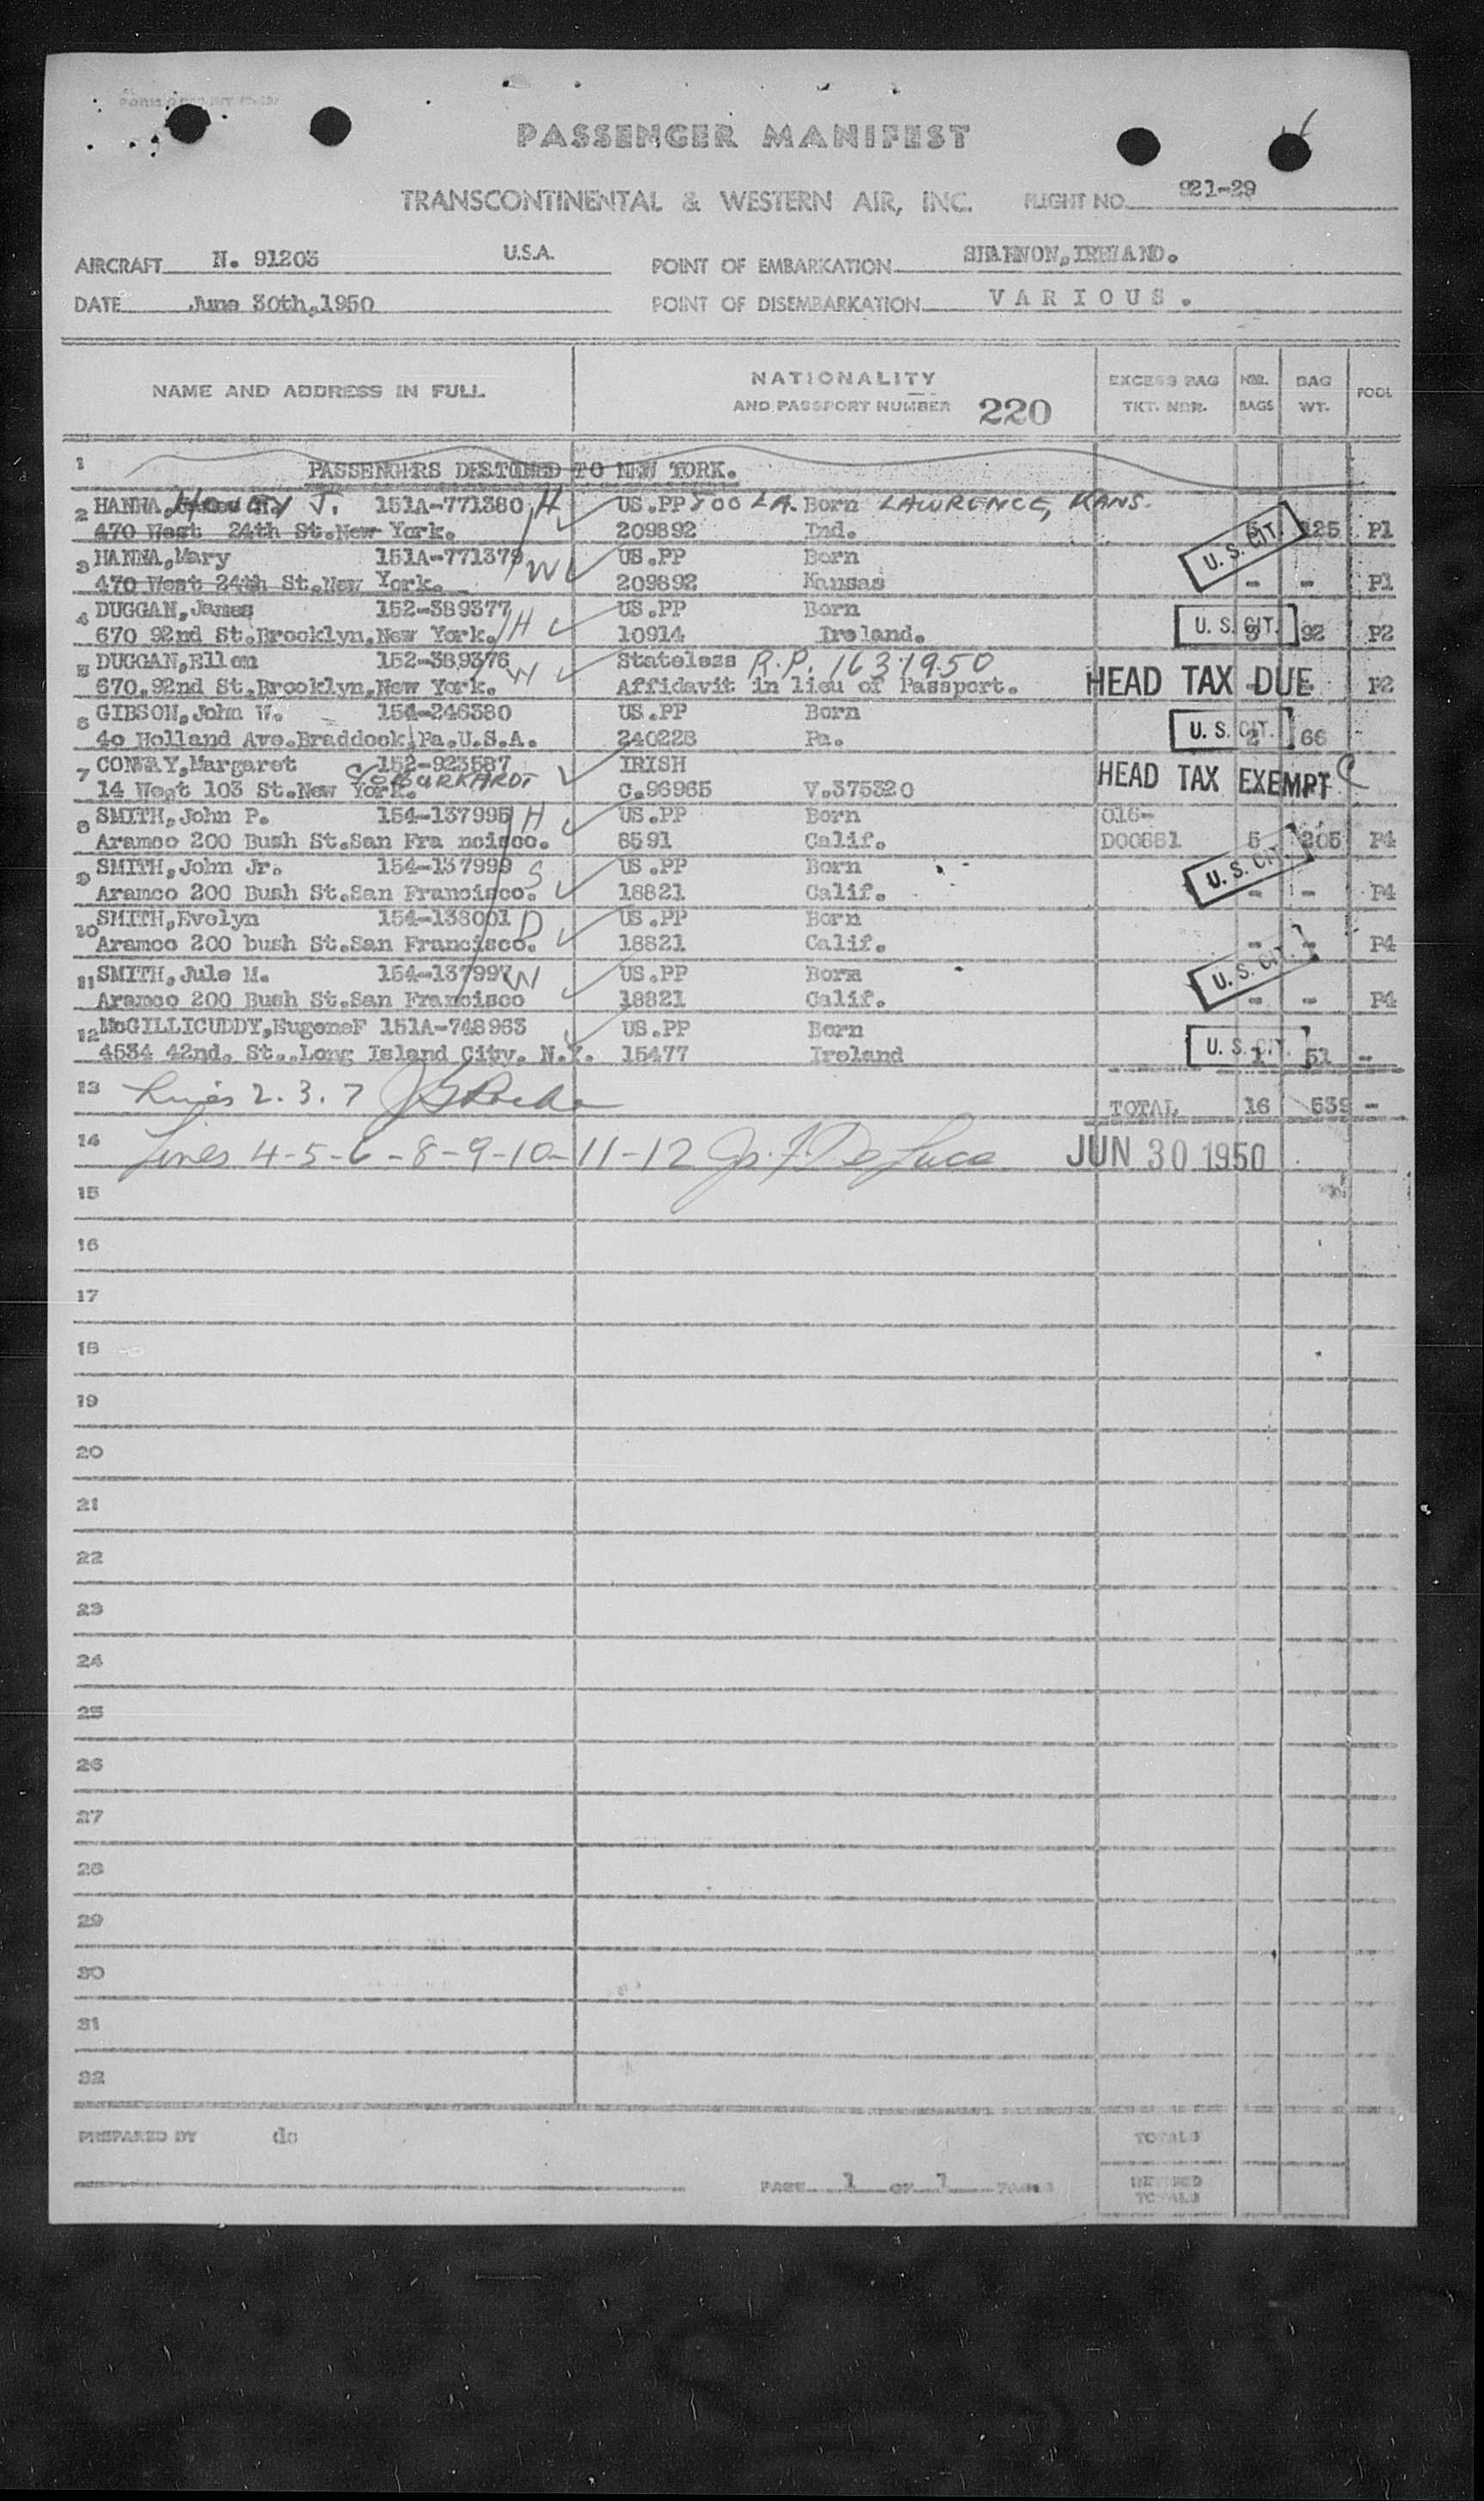 PASSENGER MANIFEST
TRANSCONTINENTAL & WESTERN AIR, INC. FLIGHT NO. 921-29
AIRCRAFT N. 91203 U.S.A. POINT OF EMBARKATION SHANNON, IRELAND.
DATE June 30th,1950 POINT OF DISEMBARKATION VARIOUS.
NAME AND ADDRESS IN FULL NATIONALITY AND PASSPORT NUMBER 220 EXCESS BAG TKT. NBR. NBR. BAGS BAG WT. POOL
1 PASSENGERS DESTINED TO NEW YORK.
2 HANNA, J. 151A-771380 H US.PP 800 LA. Born LAWRENCE, KANS.
470 West 24th St.New York. 209892 Ind. U. S. CIT. 125 P1
3 HANNA,Mary 151A-771379 W US.PP Born
470 West 24th St.New York. 209892 Kansas - - P1
4 DUGGAN,James 152-389377 H US.PP Born
670 92nd St.Brooklyn,New York. 10914 Ireland. U. S. CIT. 92 P2
5 DUGGAN,Ellen 152-389376 W Stateless R.P. 163-1950
670.92nd St.Brooklyn,New York. Affidavit in lieu of Passport. HEAD TAX DUE P2
6 GIBSON,John W. 154-246380 US.PP Born
40 Holland Ave.Braddock,Pa.U.S.A. 240228 Pa. U. S. CIT. 2 66
7 CONWAY,Margaret 152-923587 IRISH
c/o BURKHARDT
14 West 103 St.New York. C.96965 V.375320 HEAD TAX EXEMPT C
8 SMITH,John P. 154-137995 H US.PP Born 016-
Aramco 200 Bush St.San Fra ncisco. 8591 Calif. D00681 5 205 P4
9 SMITH,John Jr. 154-137999 S US.PP Born
Aramco 200 Bush St.San Francisco. 18821 Calif. U. S. CIT. - - P4
10 SMITH,Evelyn 154-138001 D US.PP Born
Aramco 200 bush St.San Francisco. 18821 Calif. - - P4
11 SMITH,Jule M. 154-137997 W US.PP Born U. S. CIT.
Aramco 200 Bush St.San Francisco 18821 Calif. - - P4
12 McGILLICUDDY,EugeneF 151A-748963 US.PP Born
4534 42nd. St..Long Island City. N.Y. 15477 Ireland U. S. CIT. 1 51 -
13 Lines 2. 3. 7
TOTAL 16 539 -
14 Lines 4-5-6-8-9-10-11-12 JUN 30 1950
15
16
17
18
19
20
21
22
23
24
25
26
27
28
29
30
31
32
PREPARED BY dc TOTALS
PAGE 1 OF 1 PAGES
TOTALS